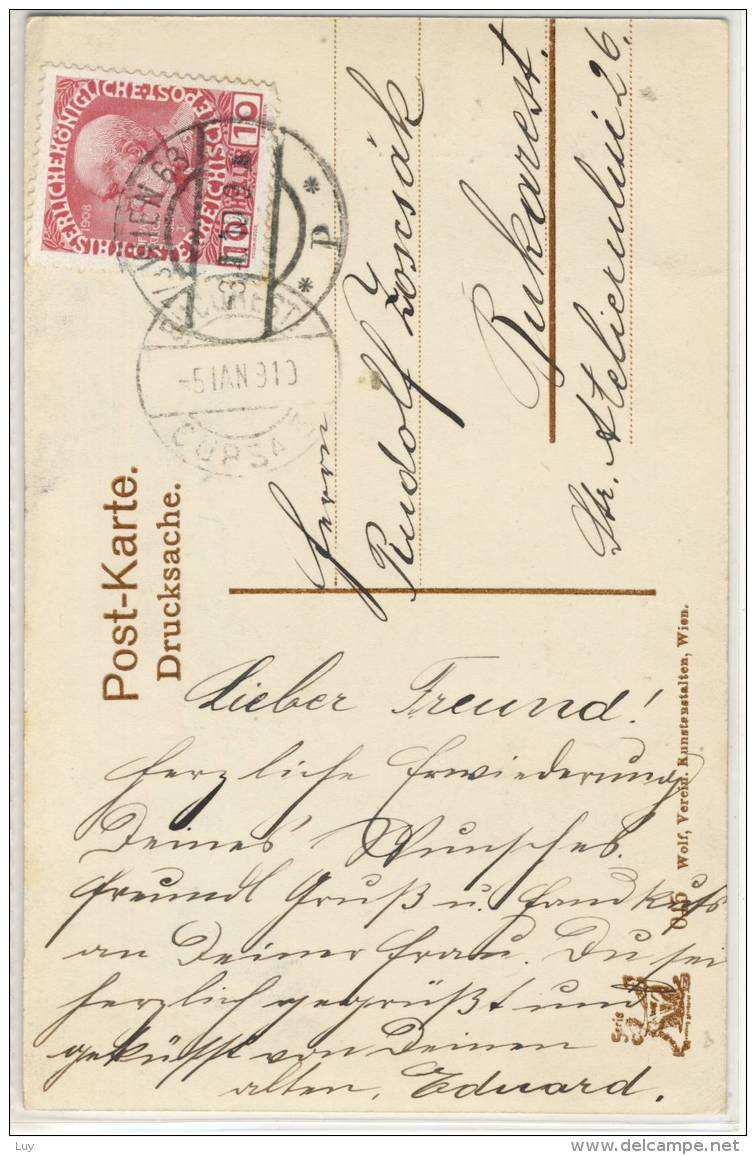 KAISERLICHE KÖNIGLICHE ÖSTERREICHISCHE POST
1908
10 10
WIEN 63
* P *
BUCUREST
-5 IAN 910
CURSA
Post-Karte.
Drucksache.
Herrn
Rudolf Zonsák
Bukarest.
Str. Atelierului 26.
Lieber Freund!
Herzliche Erwiederung
Deines Wunsches.
Freundl Gruß u. Handkuß
an Deiner Frau. Du sei
herzlich gegrüßt und
geküsst von Deinen
alten, Eduard.
Serie
Wolf, Verein. Kunstanstalten, Wien.
Luy
www.delcampe.net